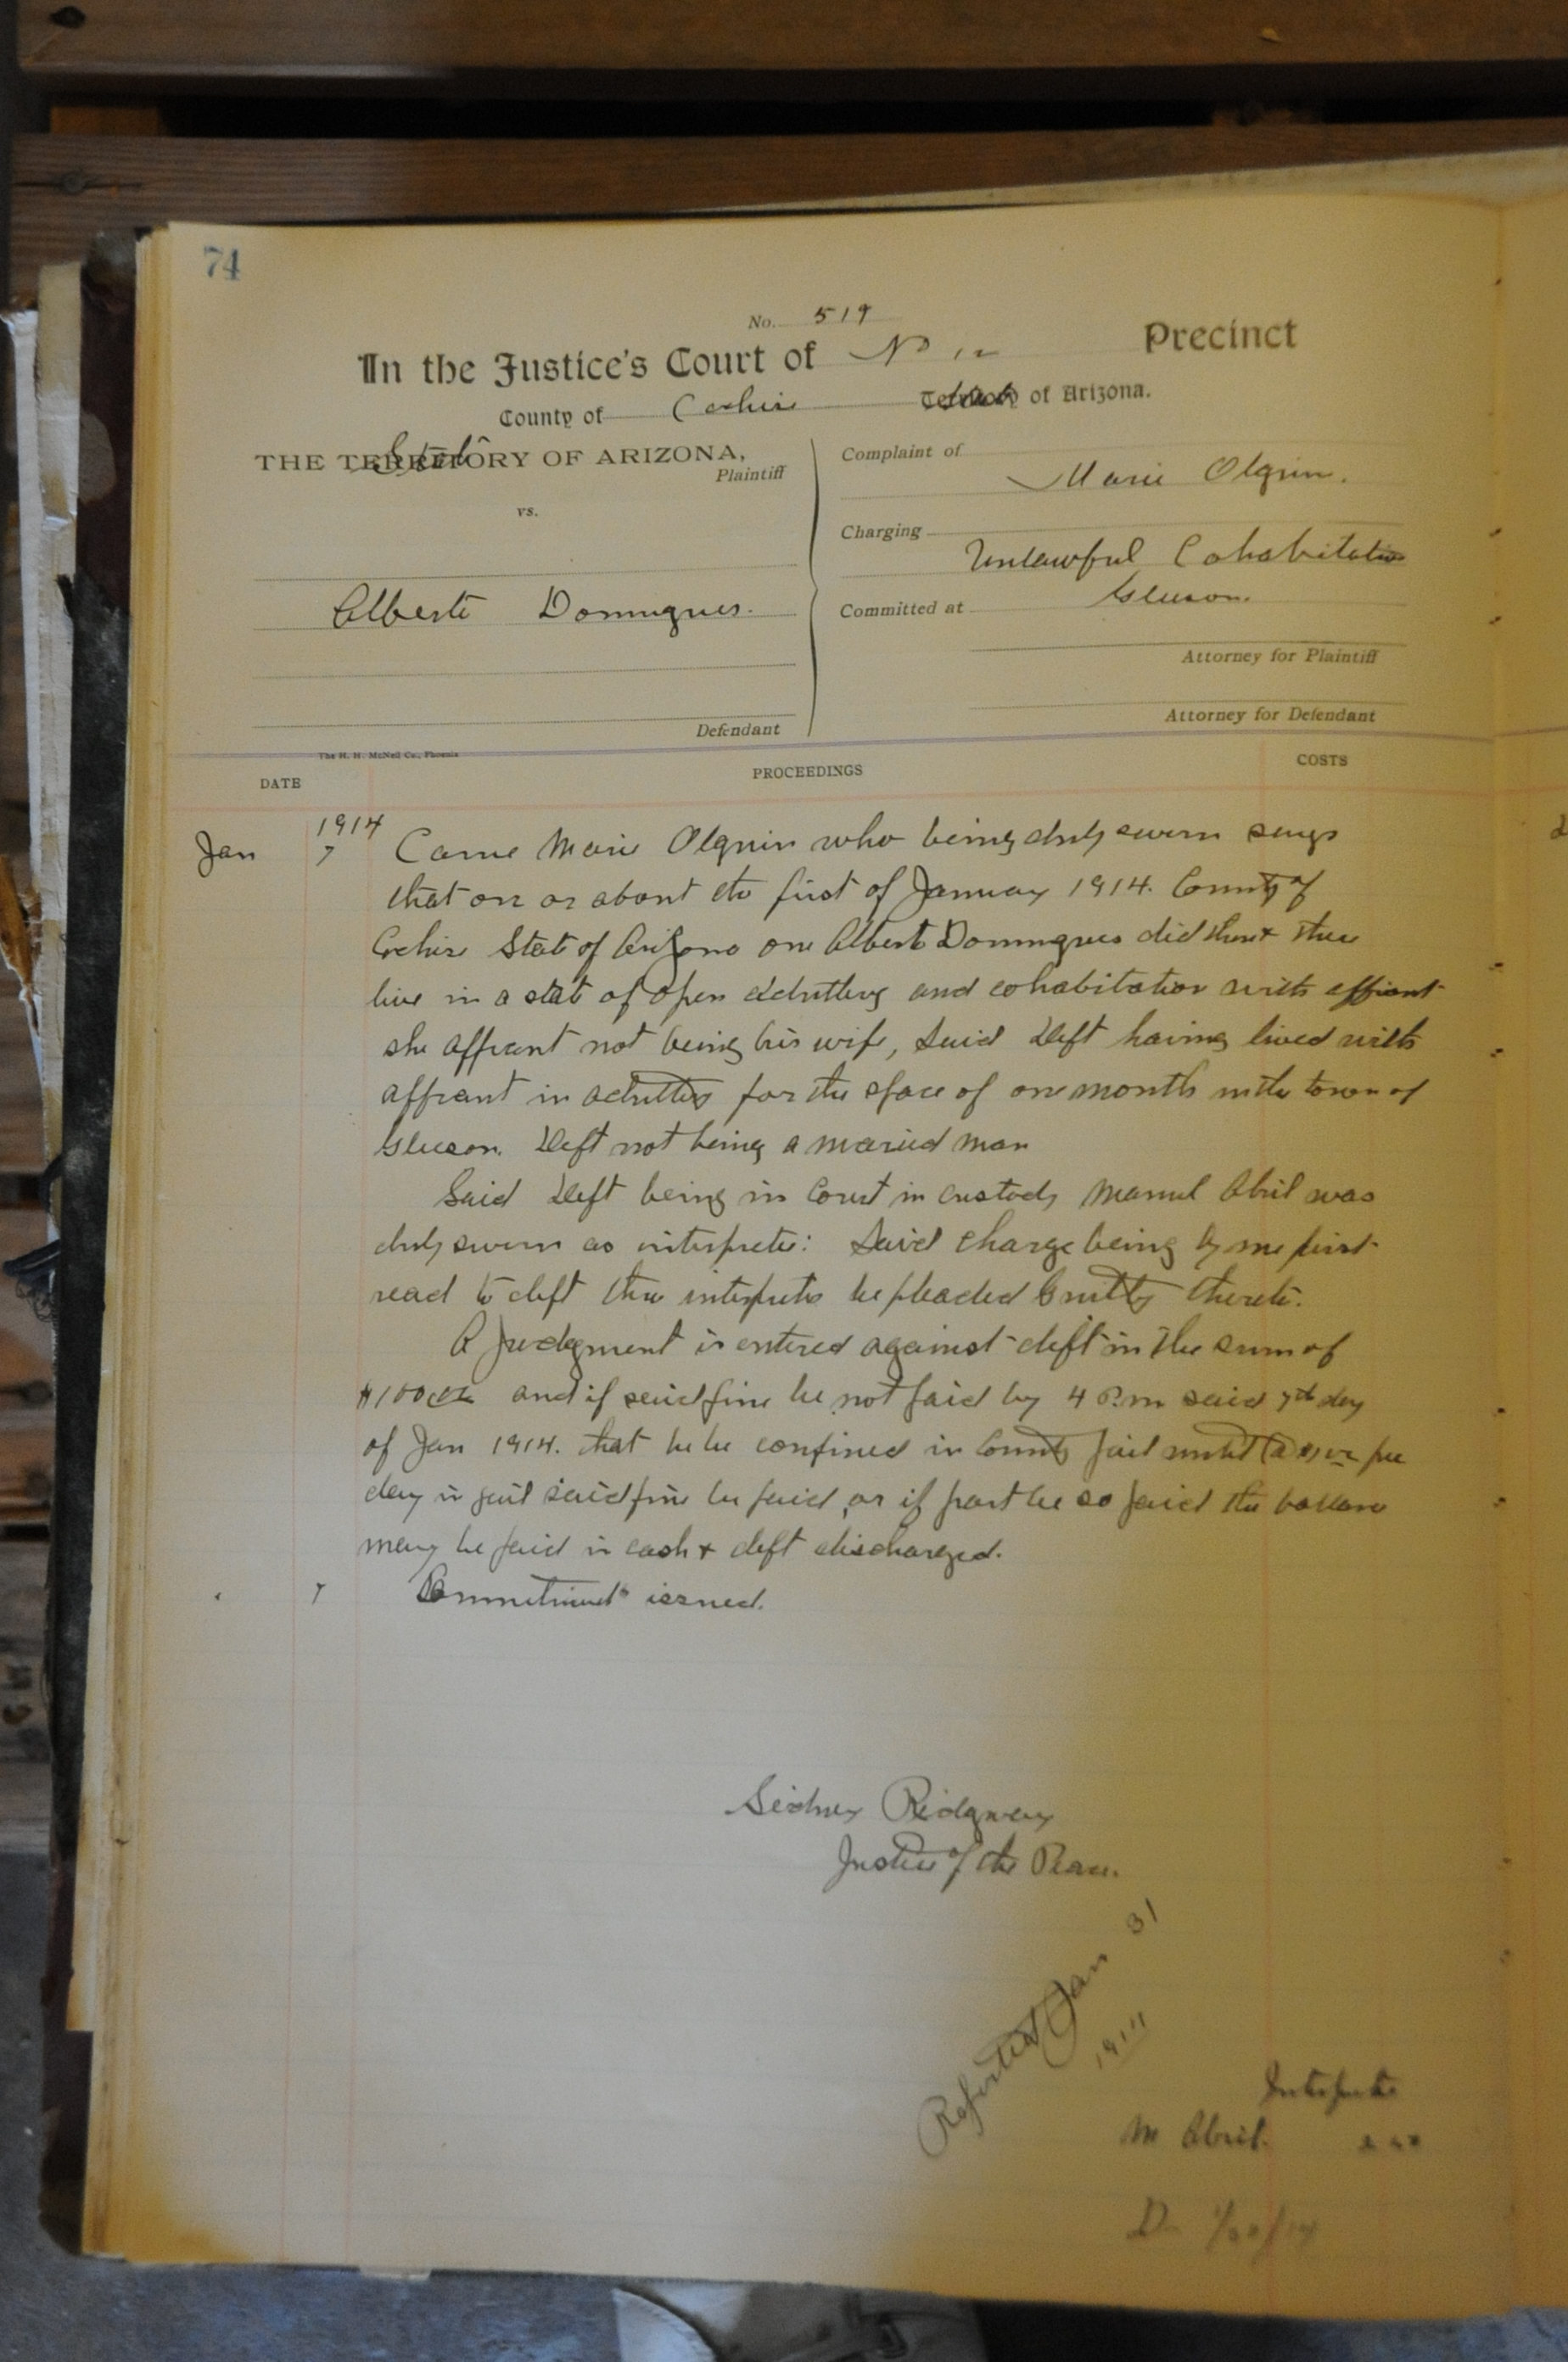 74
No. 519
In the Justice's Court of No 12 Precinct
County of Cochise State of Arizona.
THE State OF ARIZONA,
Plaintiff
vs.
Alberto Domingues.
Defendant
Complaint of
Marie Olguin.
Charging
Unlawful Cohabitation
Committed at Gleeson.
Attorney for Plaintiff
Attorney for Defendant
The H. H. McNeil Co., Phoenix
DATE PROCEEDINGS COSTS
1914
Jan 7 Came Marie Olguin who being duly sworn says
that on or about the first of January 1914. County of
Cochise State of Arizona one Alberto Domingues did then & there
live in a state of open adultery and cohabitation with affiant
she affiant not being his wife, Said Deft having lived with
affiant in adultery for the space of one month in the town of
Gleeson. Deft not being a maried man
Said Deft being in Court in custody Manuel Abril was
duly sworn as interpreter: Said charge being by me first
read to deft thru interpreter he pleaded Guilty thereto.
A Judgment is entered against deft in the sum of
$100 and if said fine be not paid by 4 P.m said 7th day
of Jan 1914. that he be confined in County Jail until @ $1 per
day in jail said fine be paid, or if part be so paid the ballance
may be paid in cash & deft discharged.
7 Commitment issued.
Sidney Ridgway
Justice of the Peace.
Reported Jan 31
1914
Interpreter
M Abril.